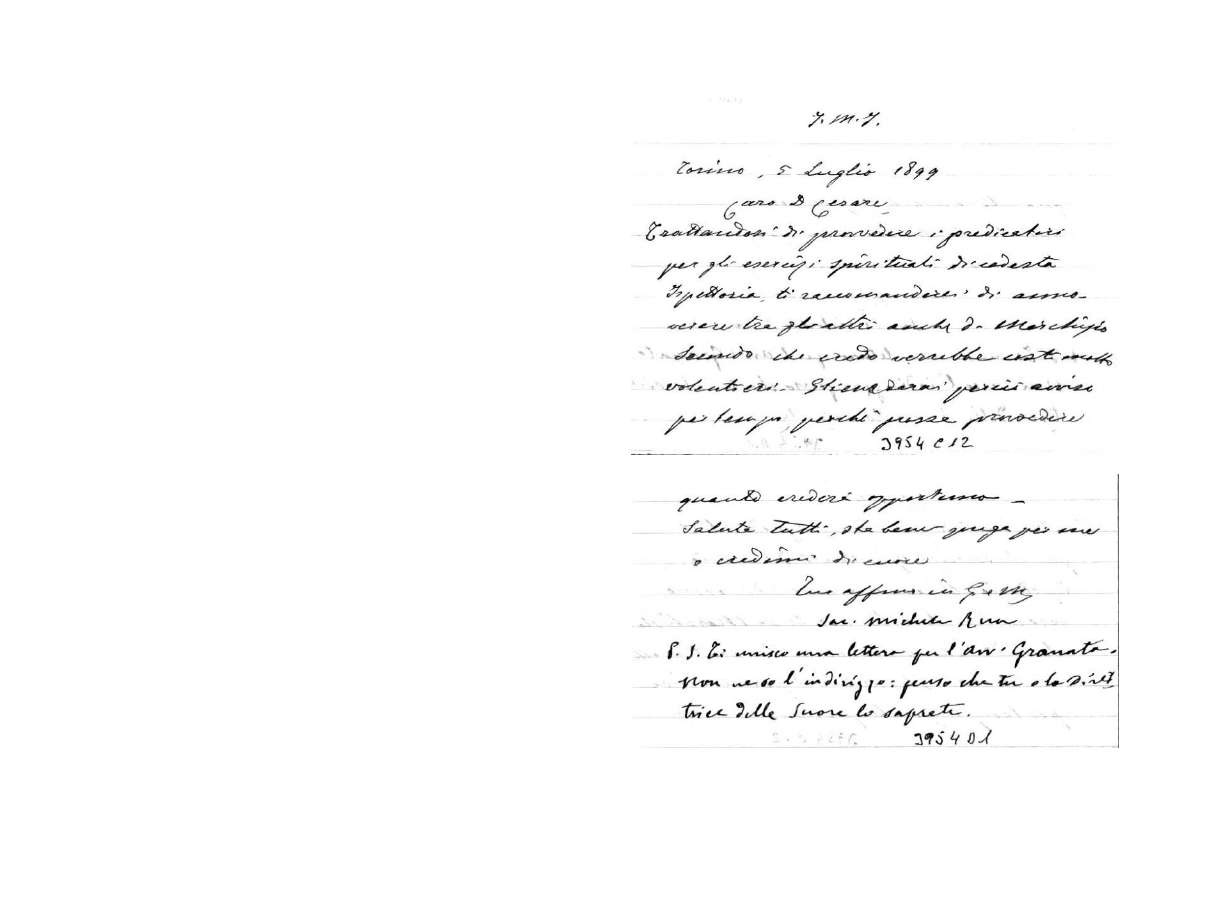 J. M. J.
Torino, 5 Luglio 1899
Caro D Cesare
Trattandosi di provvedere i predicatori
per gli esercizi spirituali di codesta
Ispettoria, ti raccomanderei di anno-
verare tra gli altri anche D. Marchisio
Secondo che credo verrebbe costì molto
volentieri. Gliene darai perciò avviso
per tempo, perchè possa provvedere
3954 C 12
quanto crederà opportuno _
Saluta tutti, sta bene prega per me
e credimi di cuore
Tuo affmo in G e M
Sac. Michele Rua
P. S. Ti unisco una lettera per l'Avv. Granata.
Non ne so l'indirizzo: penso che tu o la Diret
trice delle Suore lo saprete.
3954 D 1